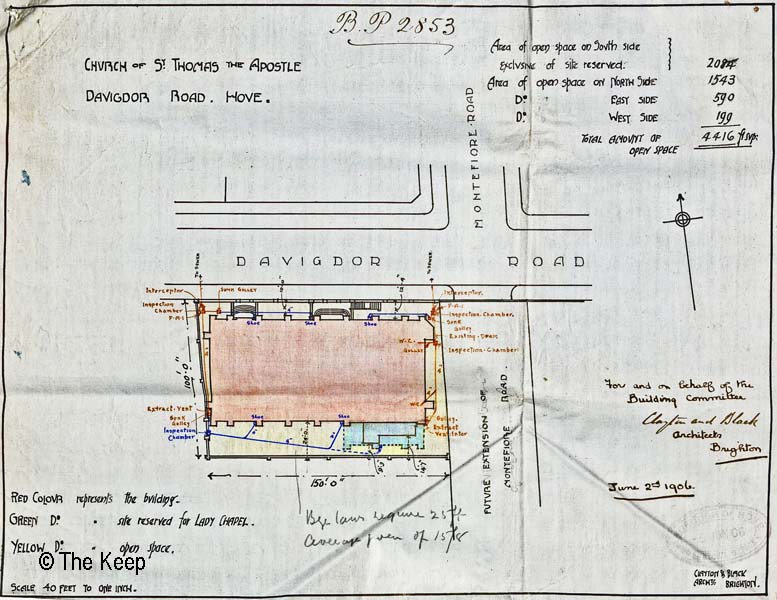 B.P 2853
CHURCH OF ST. THOMAS THE APOSTLE
DAVIGDOR ROAD. HOVE.
Area of open space on South side
Exclusive of site reserved. 2084
Area of open space on NORTH SIDE 1543
Do. EAST SIDE 590
Do. WEST SIDE 199
TOTAL AMOUNT OF 4416 ft sup.
OPEN SPACE
MONTEFIORE ROAD
DAVIGDOR ROAD
TO SEWER
TO SEWER
Interceptor
SUNK GULLEY
Interceptor.
Inspection
Chamber
F.A.I.
F.A.I.
Inspection Chamber.
Sunk
Gulley
Existing Drain
W.C.
GULLEY
Inspection Chamber.
Shoe
Shoe
Shoe
100'.0"
W.C.
Extract Vent
Sunk
Gulley
Inspection
Chamber
Shoe
Shoe
Gulley.
Extract
Ventilator
150'.0"
FUTURE EXTENSION OF
MONTEFIORE ROAD.
For and on behalf of the
Building Committee
Clayton and Black
Architects
Brighton
June 2nd 1906.
RED COLOUR represents the building.
GREEN Do. " site reserved for LADY CHAPEL.
YELLOW Do. " open space.
Bye laws require 25 ft
average of 15
© The Keep
SCALE 40 FEET TO ONE INCH.
CLAYTON & BLACK
ARCHTS. BRIGHTON.